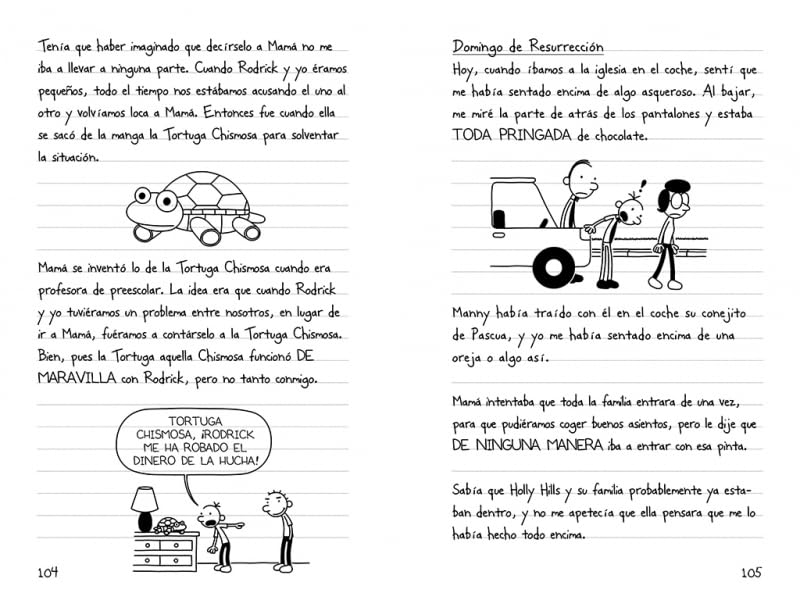 Tenía que haber imaginado que decírselo a Mamá no me
iba a llevar a ninguna parte. Cuando Rodrick y yo éramos
pequeños, todo el tiempo nos estábamos acusando el uno al
otro y volvíamos loca a Mamá. Entonces fue cuando ella
se sacó de la manga la Tortuga Chismosa para solventar
la situación.
Mamá se inventó lo de la Tortuga Chismosa cuando era
profesora de preescolar. La idea era que cuando Rodrick
y yo tuviéramos un problema entre nosotros, en lugar de
ir a Mamá, fuéramos a contárselo a la Tortuga Chismosa.
Bien, pues la Tortuga aquella Chismosa funcionó DE
MARAVILLA con Rodrick, pero no tanto conmigo.
TORTUGA
CHISMOSA, ¡RODRICK
ME HA ROBADO EL
DINERO DE LA HUCHA!
104
Domingo de Resurrección
Hoy, cuando íbamos a la iglesia en el coche, sentí que
me había sentado encima de algo asqueroso. Al bajar,
me miré la parte de atrás de los pantalones y estaba
TODA PRINGADA de chocolate.
!
Manny había traído con él en el coche su conejito
de Pascua, y yo me había sentado encima de una
oreja o algo así.
Mamá intentaba que toda la familia entrara de una vez,
para que pudiéramos coger buenos asientos, pero le dije que
DE NINGUNA MANERA iba a entrar con esa pinta.
Sabía que Holly Hills y su familia probablemente ya esta-
ban dentro, y no me apetecía que ella pensara que me lo
había hecho todo encima.
105